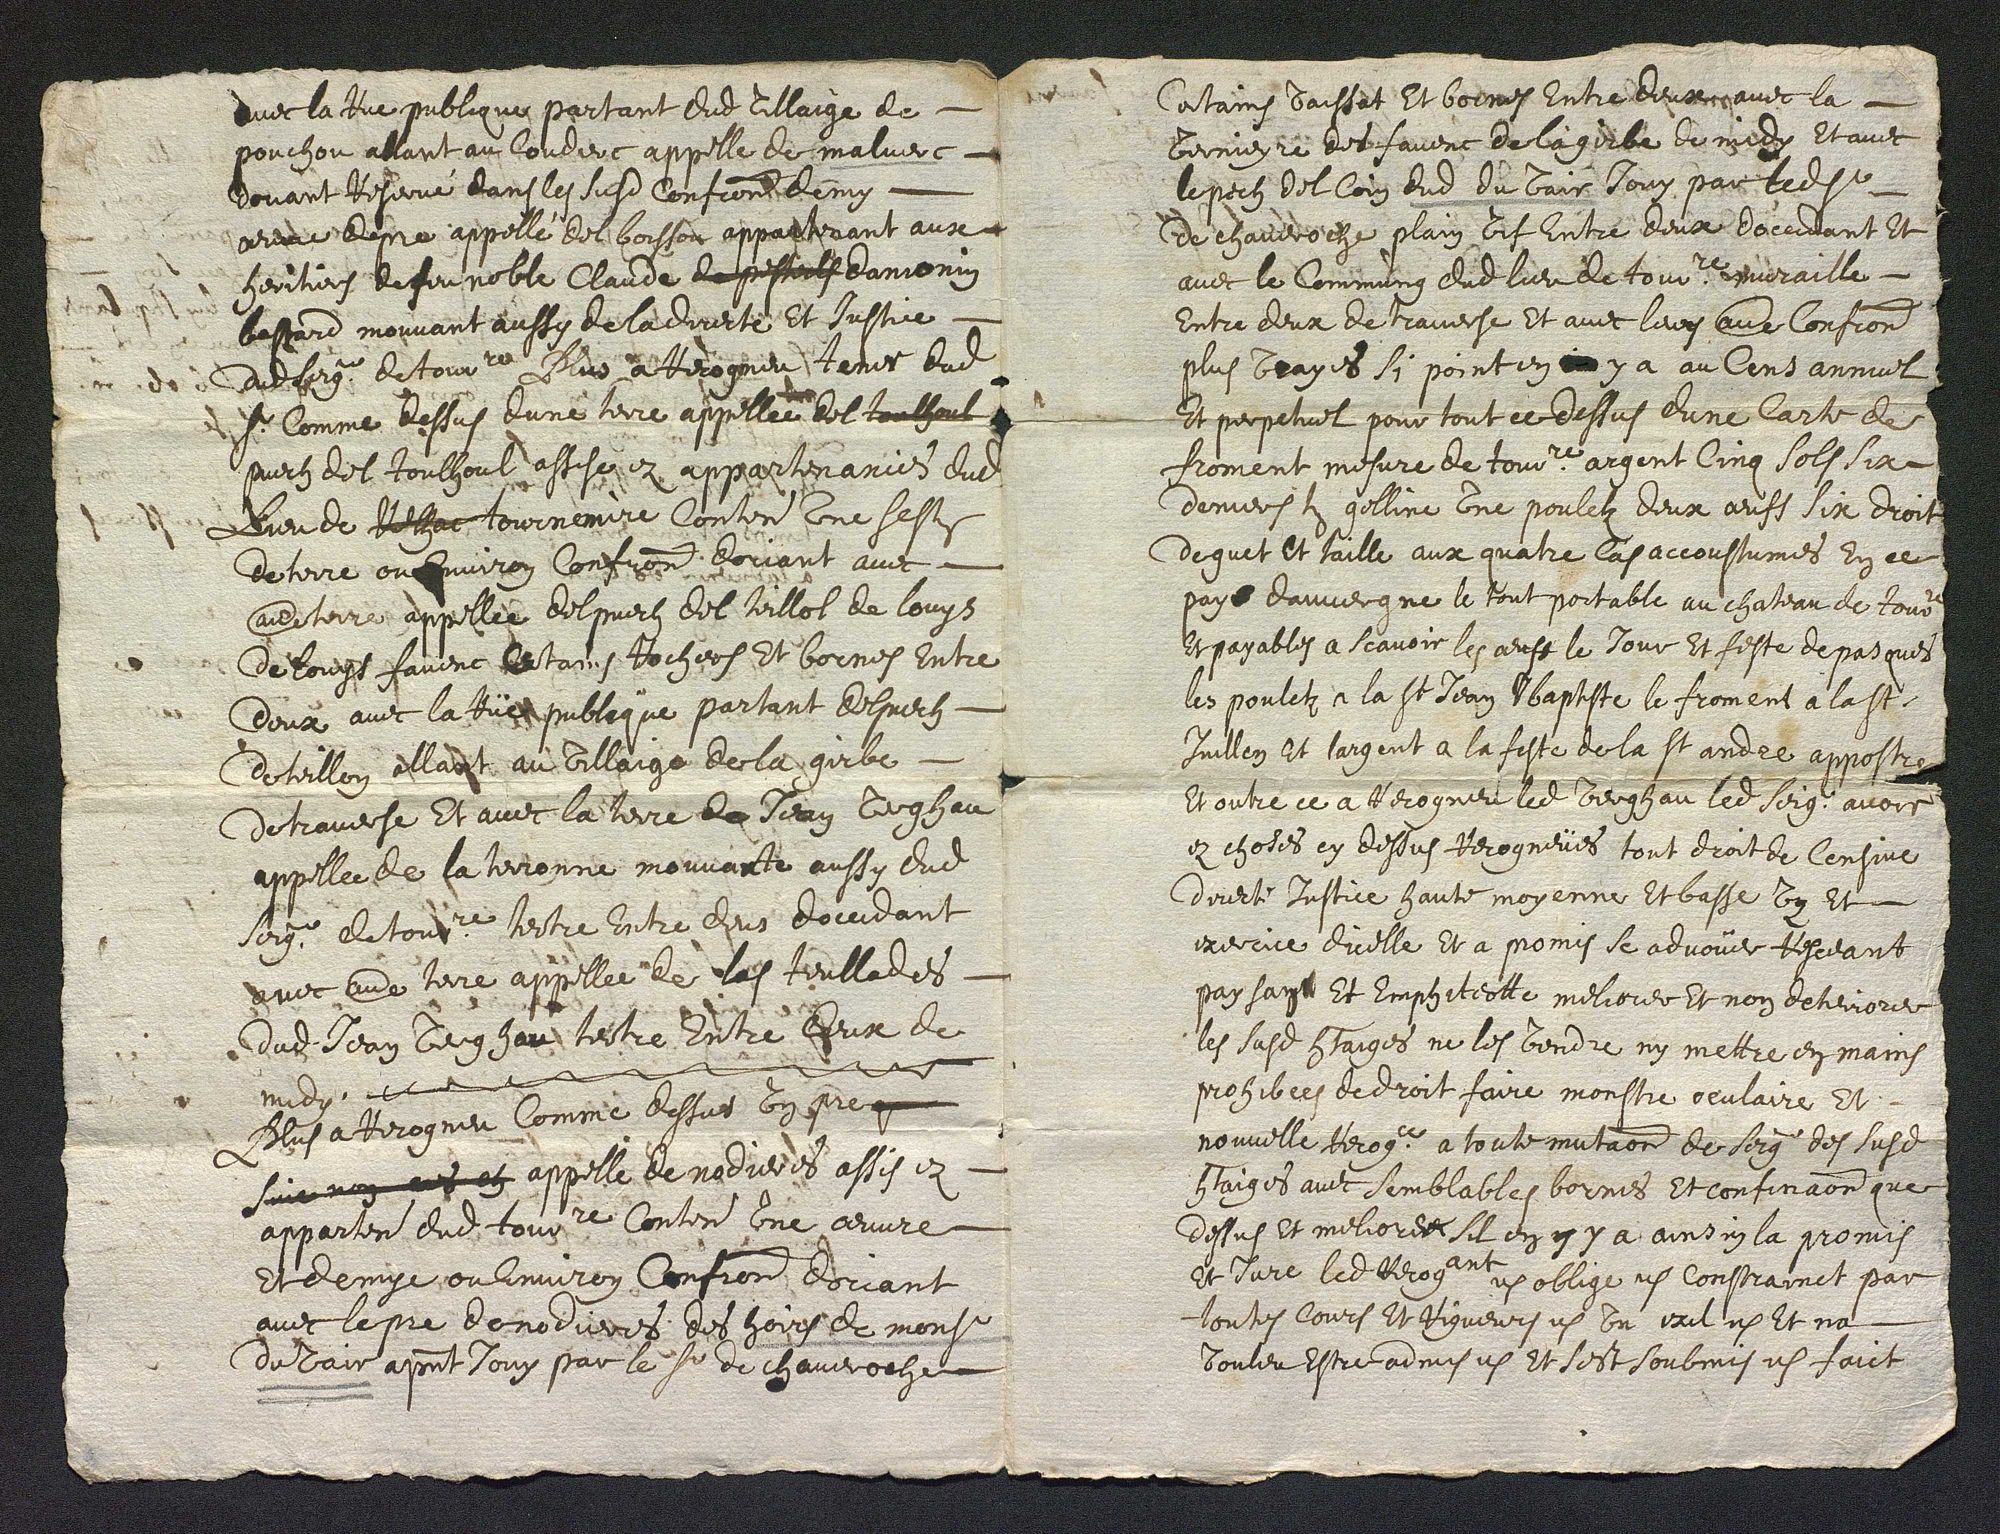 avec la Rue publique partant dud Village de
pouchou allant au Couderc appellé de maluerc
douant Reservé dans les susd Confron demy
œuvre de pre appellé del boisson appartenant aux
heritiers de feu noble Claude de pesteils danionin
bastard mouvant aussy de la directe Et Justice
dud seigr de tourre Plus a Recogneu tenir dud
sr Comme dessus dune terre appellee del toulhoul
puech del toulhoul assise ez appartenances dud
Lieu de tournemire Conten Une sesty
de terre ou Environ Confron doriant avec
aude terre appellee del puech del teillol de Louys
de Louys favenc Certains Rochers Et bornes Entre
deux avec la Rüe publiqüe partant del puech
de teillon allant au Villaige de la girbe
de traverse Et avec la terre de Jean Verghau
appellee de la teronne mouvante aussy dud
seigr de tourre tertre Entre deus doccidant
avec aude terre appellee de las teullades
Dud Jean Verghau tertre Entre deux de
midy.
Plus a Recogneu Comme dessus Un pre
appelle de nodieres assis ez
apparten dud tourre Conten Une œuvre
Et demye ou Environ Confron doriant
avec le pre de nodieres des hoirs de monsr
du Vair apnt Jouy par le sr de chaveroche
Certains Vaissat Et bornes Entre deux avec la
Verniere del favenc de la girbe de midy Et avec
le pech del Coin dud du Vair Jouy par led sr
de chaveroche plain Vif Entre deux doccidant Et
avec le Commung dud lieu de tourre muraille
Entre deux de traverse Et avec leurs aue Confron
plus Vrayes si point en y a au Cens annuel
Et perpetuel pour tout ce dessus dune Carte de
froment mesure de tourre argent Cinq Sols Six
deniers tz gelline Une pouletz deux œufs Six droit
de guet Et taille aux quatre Cas accoustumes En ce
pays dauvergne le tout portable au chateau de tourre
Et payables a scavoir les œufs le Jour Et feste de pasques
les pouletz a la st Jean baptiste le froment a la st
Juillen Et largent a la feste de la st andre appostre
Et outre ce a Recogneu led Verghau led seigr avoir
ez choses cy dessus Recogneües tout droit de Censive
directe Justice haute moyenne Et basse Et
exercice dicelle Et a promis se advoüer Resceant
paysant Et Emphiteotte meliorer Et non deteriorer
les susd htaiges ne les Vendre ny mettre en mains
prohibees de droit faire monstre oculaire Et
nouvelle Recogce a toute mutaon de seigr des susd
htaiges avec semblables bornes Et confinaon que
dessus Et meliores sil en y a ainsin la promis
Et Jure led Recogant us oblige us Constrainct par
toutes Cours Et Rigueurs us Un exil us Et na
Voulu Estre admis us Et sest soubmis us faict